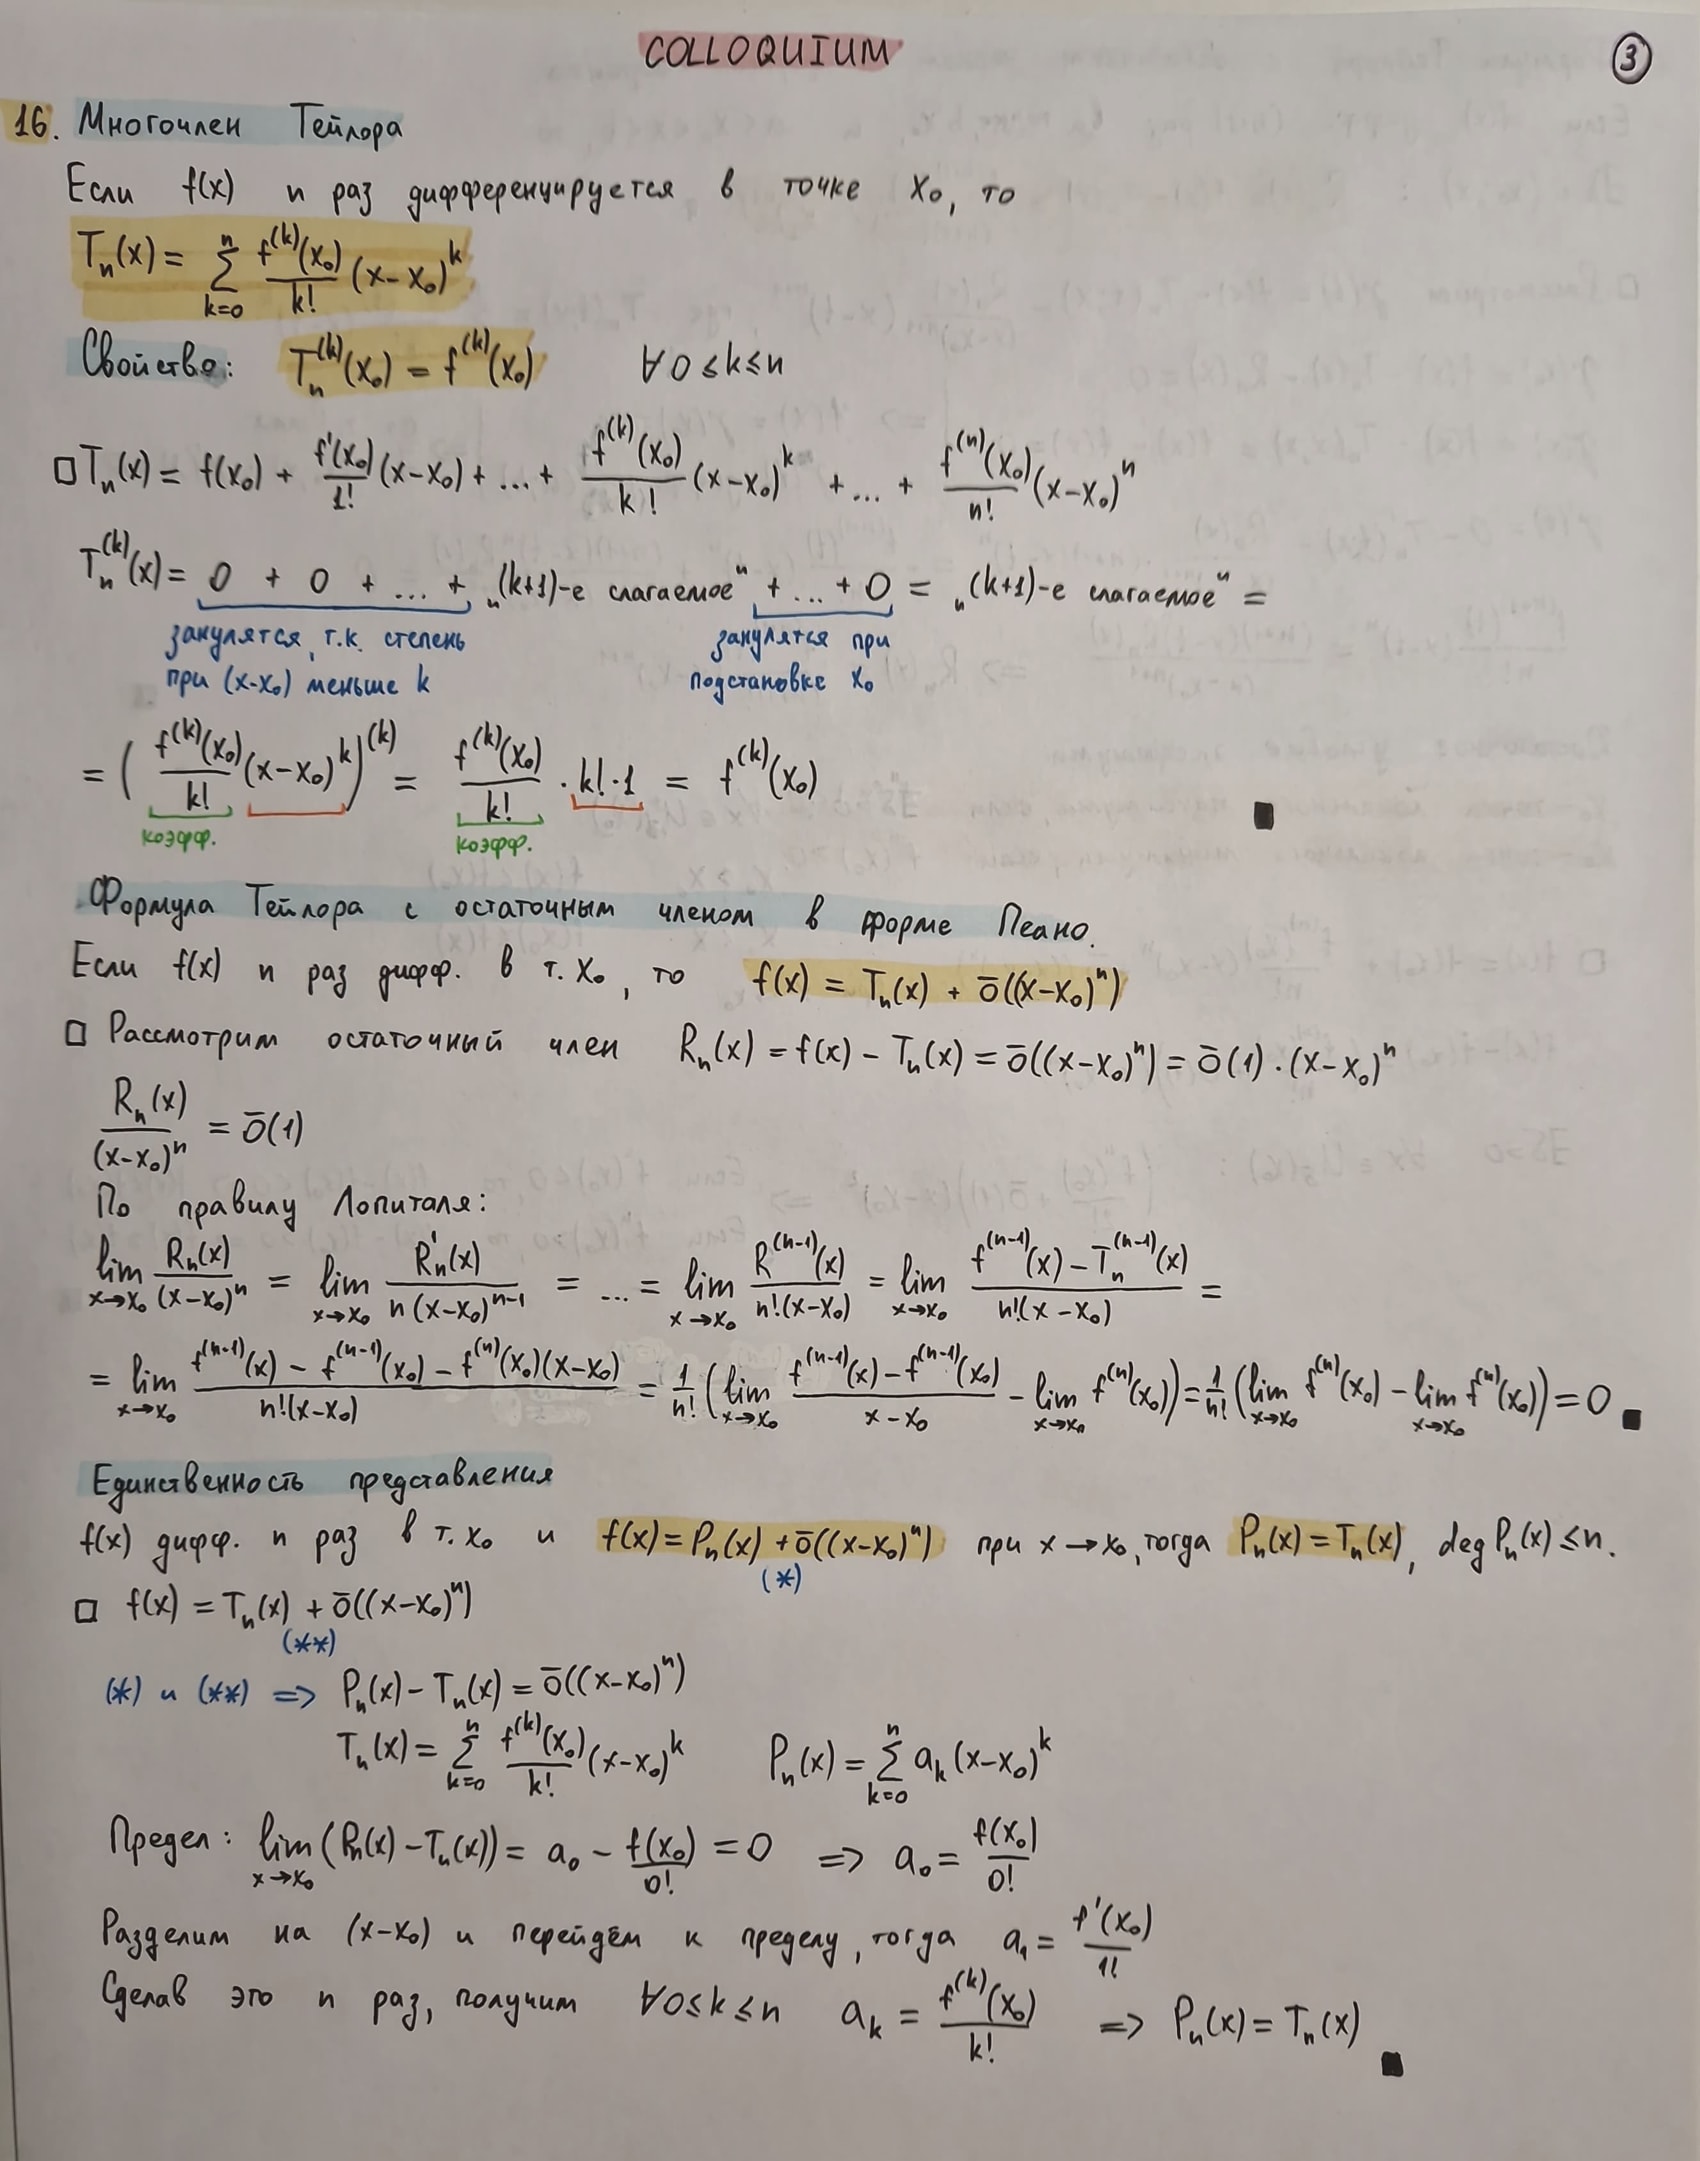 COLLOQUIUM
3
16. Многочлен Тейлора
Если f(x) n раз дифференцируется в точке x₀, то
Tₙ(x) = ∑ₖ₌₀ⁿ f⁽ᵏ⁾(x₀)/k! (x-x₀)ᵏ
Свойство: Tₙ⁽ᵏ⁾(x₀) = f⁽ᵏ⁾(x₀) ∀ 0 ≤ k ≤ n
□ Tₙ(x) = f(x₀) + f'(x₀)/1! (x-x₀) + ... + f⁽ᵏ⁾(x₀)/k! (x-x₀)ᵏ + ... + f⁽ⁿ⁾(x₀)/n! (x-x₀)ⁿ
Tₙ⁽ᵏ⁾(x) = 0 + 0 + ... + „(k+1)-е слагаемое" + ... + 0 = „(k+1)-е слагаемое" =
занулятся, т.к. степень при (x-x₀) меньше k
занулятся при подстановке x₀
= (f⁽ᵏ⁾(x₀)/k! (x-x₀)ᵏ)⁽ᵏ⁾ = f⁽ᵏ⁾(x₀)/k! · k!·1 = f⁽ᵏ⁾(x₀) ■
коэфф. коэфф.
Формула Тейлора с остаточным членом в форме Пеано.
Если f(x) n раз дифф. в т. x₀, то f(x) = Tₙ(x) + ō((x-x₀)ⁿ)
□ Рассмотрим остаточный член Rₙ(x) = f(x) - Tₙ(x) = ō((x-x₀)ⁿ) = ō(1)·(x-x₀)ⁿ
Rₙ(x)/(x-x₀)ⁿ = ō(1)
По правилу Лопиталя:
lim x→x₀ Rₙ(x)/(x-x₀)ⁿ = lim x→x₀ R'ₙ(x)/n(x-x₀)ⁿ⁻¹ = ... = lim x→x₀ R⁽ⁿ⁻¹⁾(x)/n!(x-x₀) = lim x→x₀ (f⁽ⁿ⁻¹⁾(x) - Tₙ⁽ⁿ⁻¹⁾(x))/n!(x-x₀) =
= lim x→x₀ (f⁽ⁿ⁻¹⁾(x) - f⁽ⁿ⁻¹⁾(x₀) - f⁽ⁿ⁾(x₀)(x-x₀))/n!(x-x₀) = 1/n! (lim x→x₀ (f⁽ⁿ⁻¹⁾(x) - f⁽ⁿ⁻¹⁾(x₀))/x-x₀ - lim x→x₀ f⁽ⁿ⁾(x₀)) = 1/n! (lim x→x₀ f⁽ⁿ⁾(x₀) - lim x→x₀ f⁽ⁿ⁾(x₀)) = 0 ■
Единственность представления
f(x) дифф. n раз в т. x₀ и f(x) = Pₙ(x) + ō((x-x₀)ⁿ) при x→x₀, тогда Pₙ(x) = Tₙ(x), deg Pₙ(x) ≤ n.
(*)
□ f(x) = Tₙ(x) + ō((x-x₀)ⁿ)
(**)
(*) и (**) => Pₙ(x) - Tₙ(x) = ō((x-x₀)ⁿ)
Tₙ(x) = ∑ₖ₌₀ⁿ f⁽ᵏ⁾(x₀)/k! (x-x₀)ᵏ Pₙ(x) = ∑ₖ₌₀ⁿ aₖ(x-x₀)ᵏ
Предел: lim x→x₀ (Pₙ(x) - Tₙ(x)) = a₀ - f(x₀)/0! = 0 => a₀ = f(x₀)/0!
Разделим на (x-x₀) и перейдём к пределу, тогда a₁ = f'(x₀)/1!
Сделав это n раз, получим ∀0≤k≤n aₖ = f⁽ᵏ⁾(x₀)/k! => Pₙ(x) = Tₙ(x) ■